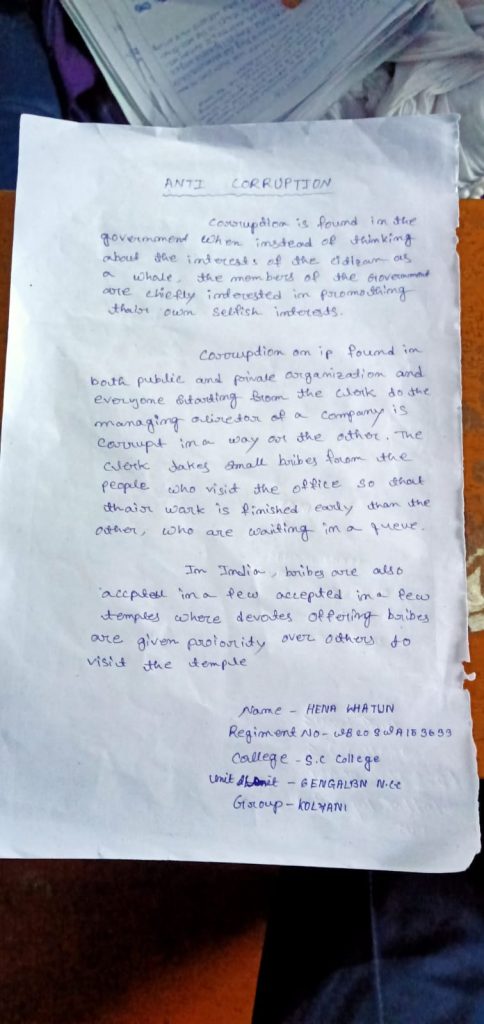 ANTI CORRUPTION
Corruption is found in the
government when instead of thinking
about the interests of the citizan as
a whale, the members of the Government
are chiefly interested in promothing
thair own selfish interests.
Corruption on ip found in
both public and private organization and
everyone starting from the clerk to the
managing diretor of a company is
Corrupt in a way or the other. The
clerk takes small bribes from the
people who visit the office so that
thair wark is finished early than the
other, who are waiting in a queue.
In India, bribes are also
in a few accepted in a few
temples where devotes offering bribes
are given proiority over others to
visit the temple
Name - HENA KHATUN
Regiment No -
College - S.C College
Unit - N.CC
Group - KOLYANI